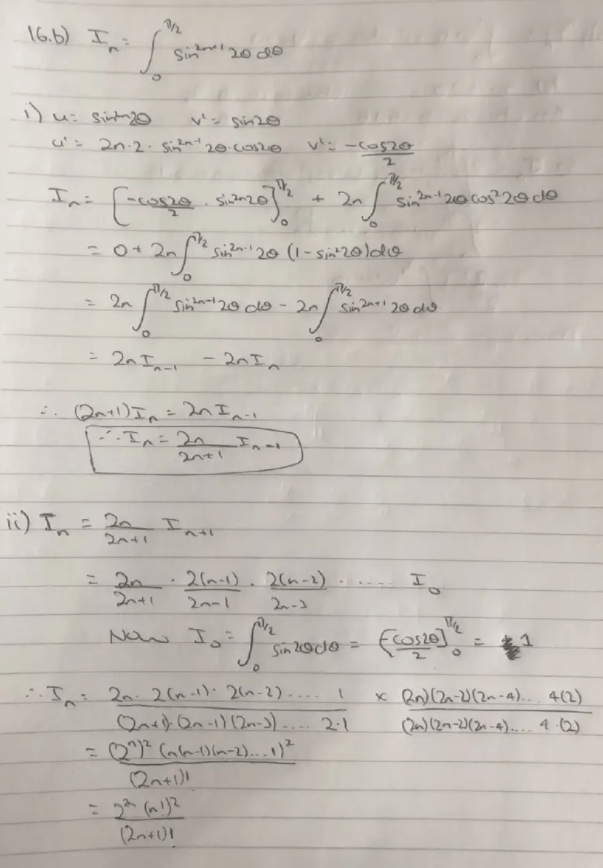 16.b) Iₙ = ∫₀^{π/2} sin²ⁿ⁺¹ 2θ dθ
i) u = sin²ⁿ2θ   v' = sin2θ
u' = 2n·2·sin²ⁿ⁻¹ 2θ·cos2θ   v' = -cos2θ/2
Iₙ = [-cos2θ/2 · sin²ⁿ2θ]₀^{π/2} + 2n ∫₀^{π/2} sin²ⁿ⁻¹ 2θ cos² 2θ dθ
= 0 + 2n ∫₀^{π/2} sin²ⁿ⁻¹ 2θ (1 - sin²2θ) dθ
= 2n ∫₀^{π/2} sin²ⁿ⁻¹ 2θ dθ - 2n ∫₀^{π/2} sin²ⁿ⁺¹ 2θ dθ
= 2n Iₙ₋₁ - 2n Iₙ
∴ (2n+1) Iₙ = 2n Iₙ₋₁
∴ Iₙ = 2n/(2n+1) Iₙ₋₁
ii) Iₙ = 2n/(2n+1) Iₙ₊₁
= 2n/(2n+1) · 2(n-1)/(2n-1) · 2(n-2)/(2n-3) · ..... I₀
Now I₀ = ∫₀^{π/2} sin2θ dθ = [-cos2θ/2]₀^{π/2} = 1
∴ Iₙ = 2n · 2(n-1) · 2(n-2) .... 1 / (2n+1)·(2n-1)(2n-3) .... 2·1 × (2n)(2n-2)(2n-4).... 4(2) / (2n)(2n-2)(2n-4).... 4·(2)
= (2ⁿ)² (n(n-1)(n-2)...1)² / (2n+1)!
= 2²ⁿ (n!)² / (2n+1)!